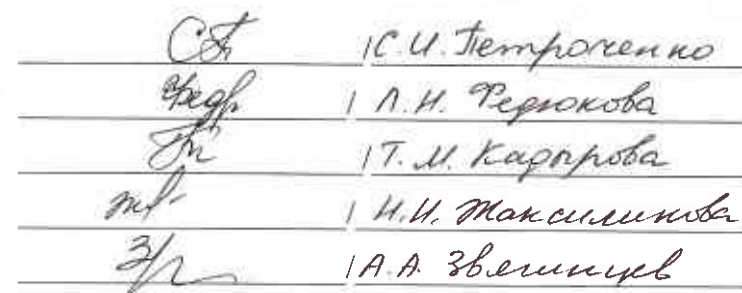 С.И. Петроченко
Л.Н. Федюкова
Т.М. Кадырова
Н.И. Жаксиликова
А.А. Звягинцев